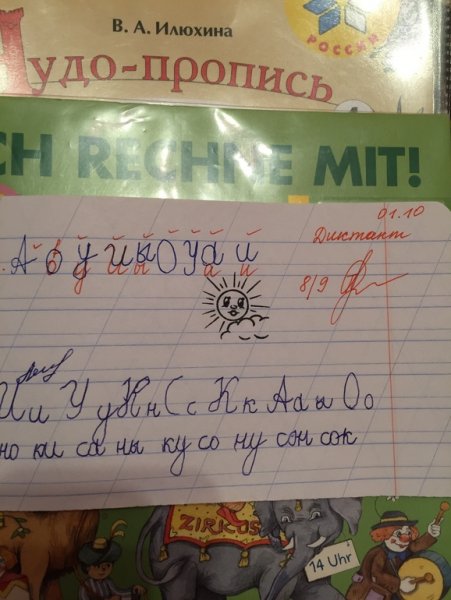 В. А. Илюхина
РОССИИ
Чудо-пропись
CH RECHNE MIT!
01.10
Диктант
А о у и ы О У а и
8/9
Ии Уу Нн Сс Кк Аа ы Оо
но ки са ны ку со ну сон сок
ZIRKUS
14 Uhr